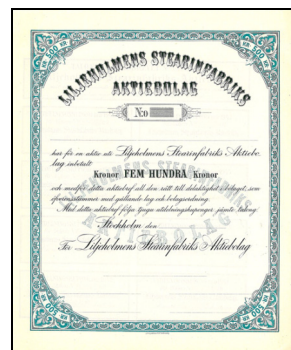 500
500
LILJEHOLMENS STEARINFABRIKS
AKTIEBOLAG
N:o
har för en aktie uti Liljeholmens Stearinfabriks Aktiebo-
lag inbetalt
Kronor FEM HUNDRA Kronor
och medför detta aktiebref all den rätt till delaktighet i bolaget, som
öfverensstämmer med gällande lag och bolagsordning.
Med detta aktiebref följa tjugo utdelningskuponger jämte talong.
Stockholm den
För Liljeholmens Stearinfabriks Aktiebolag
500
500